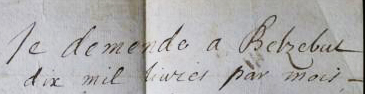 Je demende a Belzebut
dix mil livres par mois -